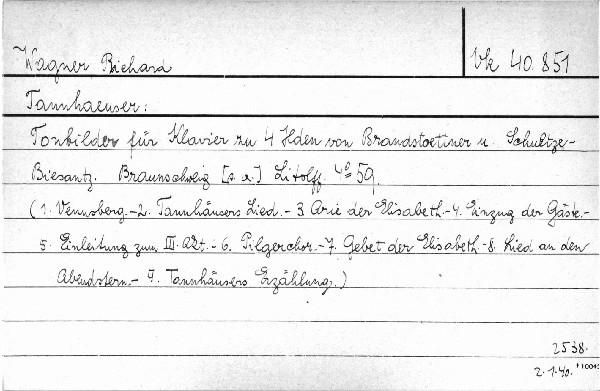 Wagner Richard
Vk 40.851
Tannhaeuser:
Tonbilder für Klavier zu 4 Hden von Brandstoetiner u. Schultze-
Biesantz. Braunschweig [s.a.] Litolff. 4° 59.
(1. Vennsberg.-2. Tannhäusers Lied.-3. Arie der Elisabeth.-4. Einzug der Gäste.-
5. Einleitung zum III. Akt.-6. Pilgerchor.-7. Gebet der Elisabeth.-8. Lied an den
Abendstern.-9. Tannhäusers Erzählung.)
2538.
2.1.40.